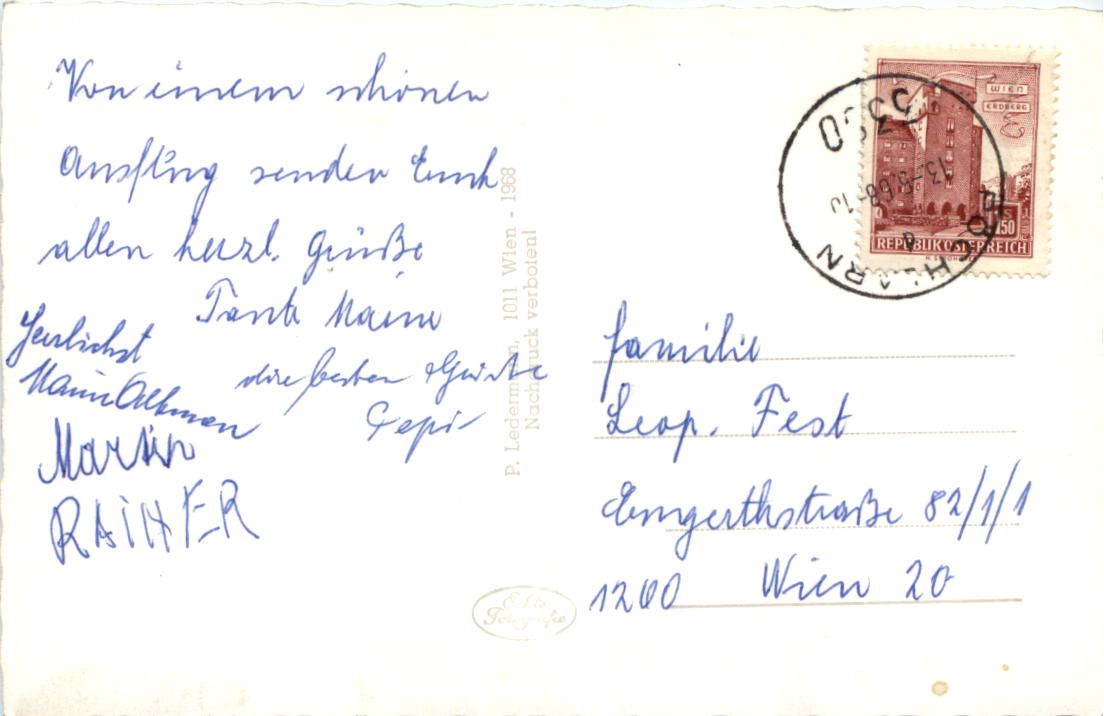 Von einem schönen
Ausflug senden Euch
allen herzl. Grüße
Tante Maine
Herzlichst
die besten Grüße
Pepi
Martin
RAINER
P. Ledermann, 1011 Wien - 1968
Nachdruck verboten!
Echte
Fotografie
WIEN
ERDBERG
1.50
REPUBLIK ÖSTERREICH
3380
PÖCHLARN
Familie
Leop. Fest
Engerthstraße 82/1/1
1200 Wien 20